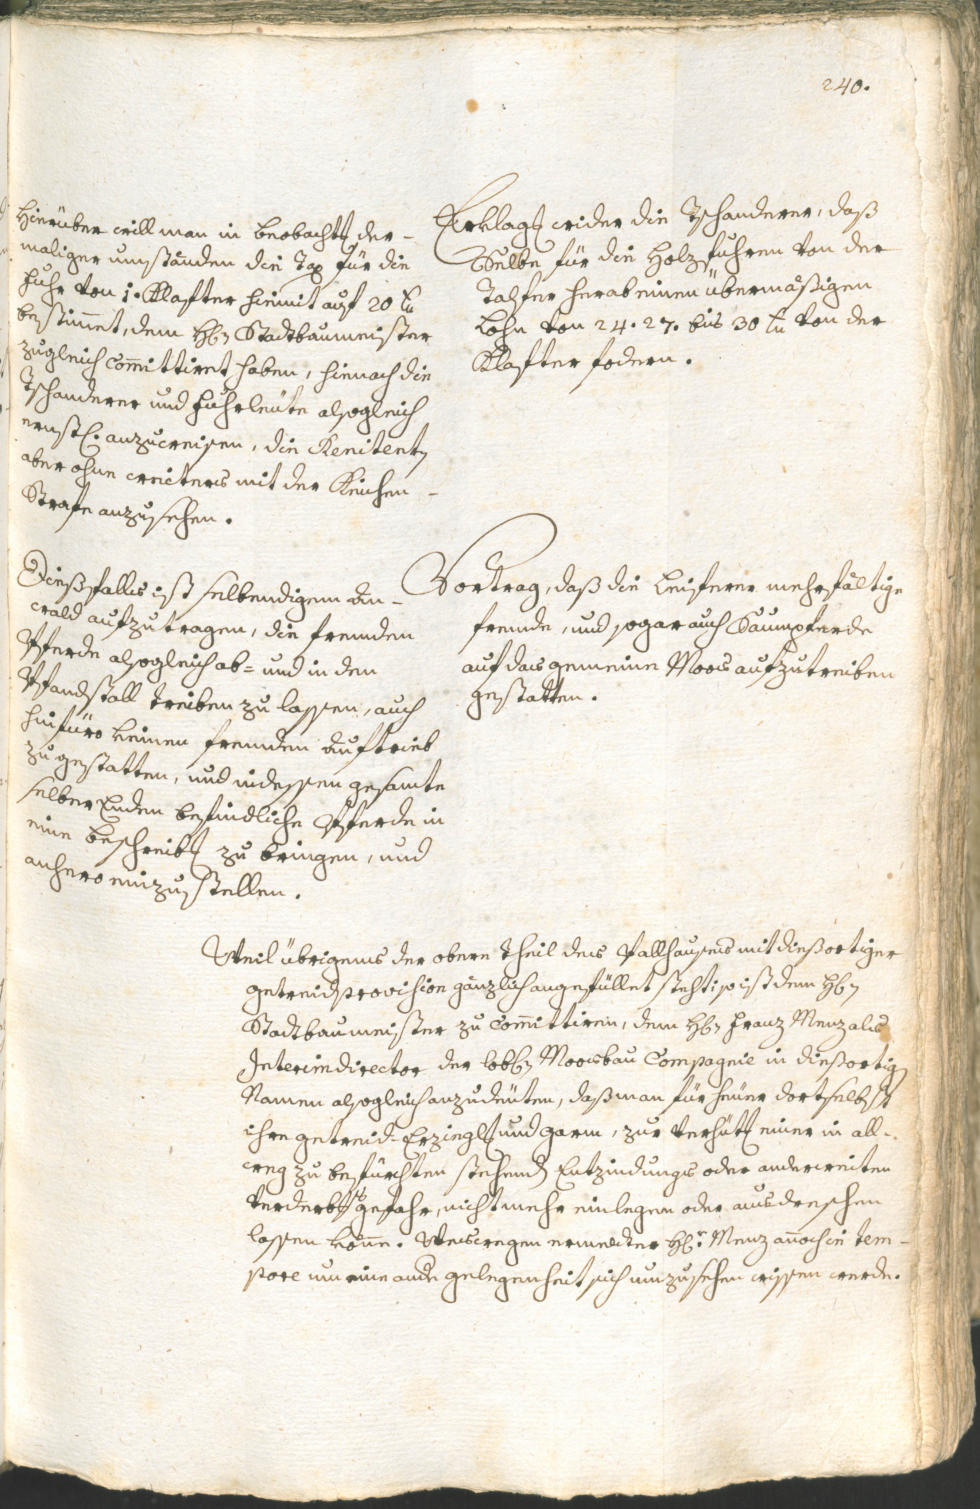 240.
Erklagt wider die Tschanderer, daß
Selbe für die Holzfuhren von der
Talfer herab einen übermäßigen
Lohn von 24. 27. bis 30 x von der
Klafter fodern.
Hierüber will man in beobachtg der-
maliger umständen die Tax für die
fuhr von 1. Klafter hiemit auf 20 x
bestimmet, dem Hhn Stadtbaumeister
zugleich committiret haben, hienach die
Tschanderer und fuhrleüte alsogleich
ernstl. anzuweisen, die Renitentn
aber ohne weiters mit der Keichen-
Strafe anzusehen.
Vortrag, daß die Leiferer mehrfältige
fremde, und sogar auch Saumpferde
auf das gemeine Moos aufzutreiben
gestatten.
Dießfalls ist selbendigem An-
wald aufzutragen, die fremden
Pferde alsogleich ab- und in den
Pfandstall treiben zu lassen, auch
hinfüro keinen fremden auftrieb
zu gestatten, und indessen gesamte
selber Enden befindliche Pferde in
eine beschreibg zu bringen, und
anhero einzustellen.
Weil übrigens der obere theil des Pallhauses mit dießortiger
getreidprovision gänzlich angefüllet steht, so ist dem Hhn
Stadtbaumeister zu committiren, dem Hhn Franz Menz als
Interimdirector der löbln Moosbau Compagnie in dießortign
Namen alsogleich anzudeüten, daß man für heüer dortselbst
ihre getreid-Erzieglt und garm, zur verhütg einer in all-
weg zu befürchten stehendn Entzindungs oder anderweiten
verderbts gefahr, nicht mehr einlegen oder ausdreschen
lassen könne. Weswegen ermelter Hl. Menz annoch in tem-
pore um eine ande gelegenheit sich umzusehen wissen werde.